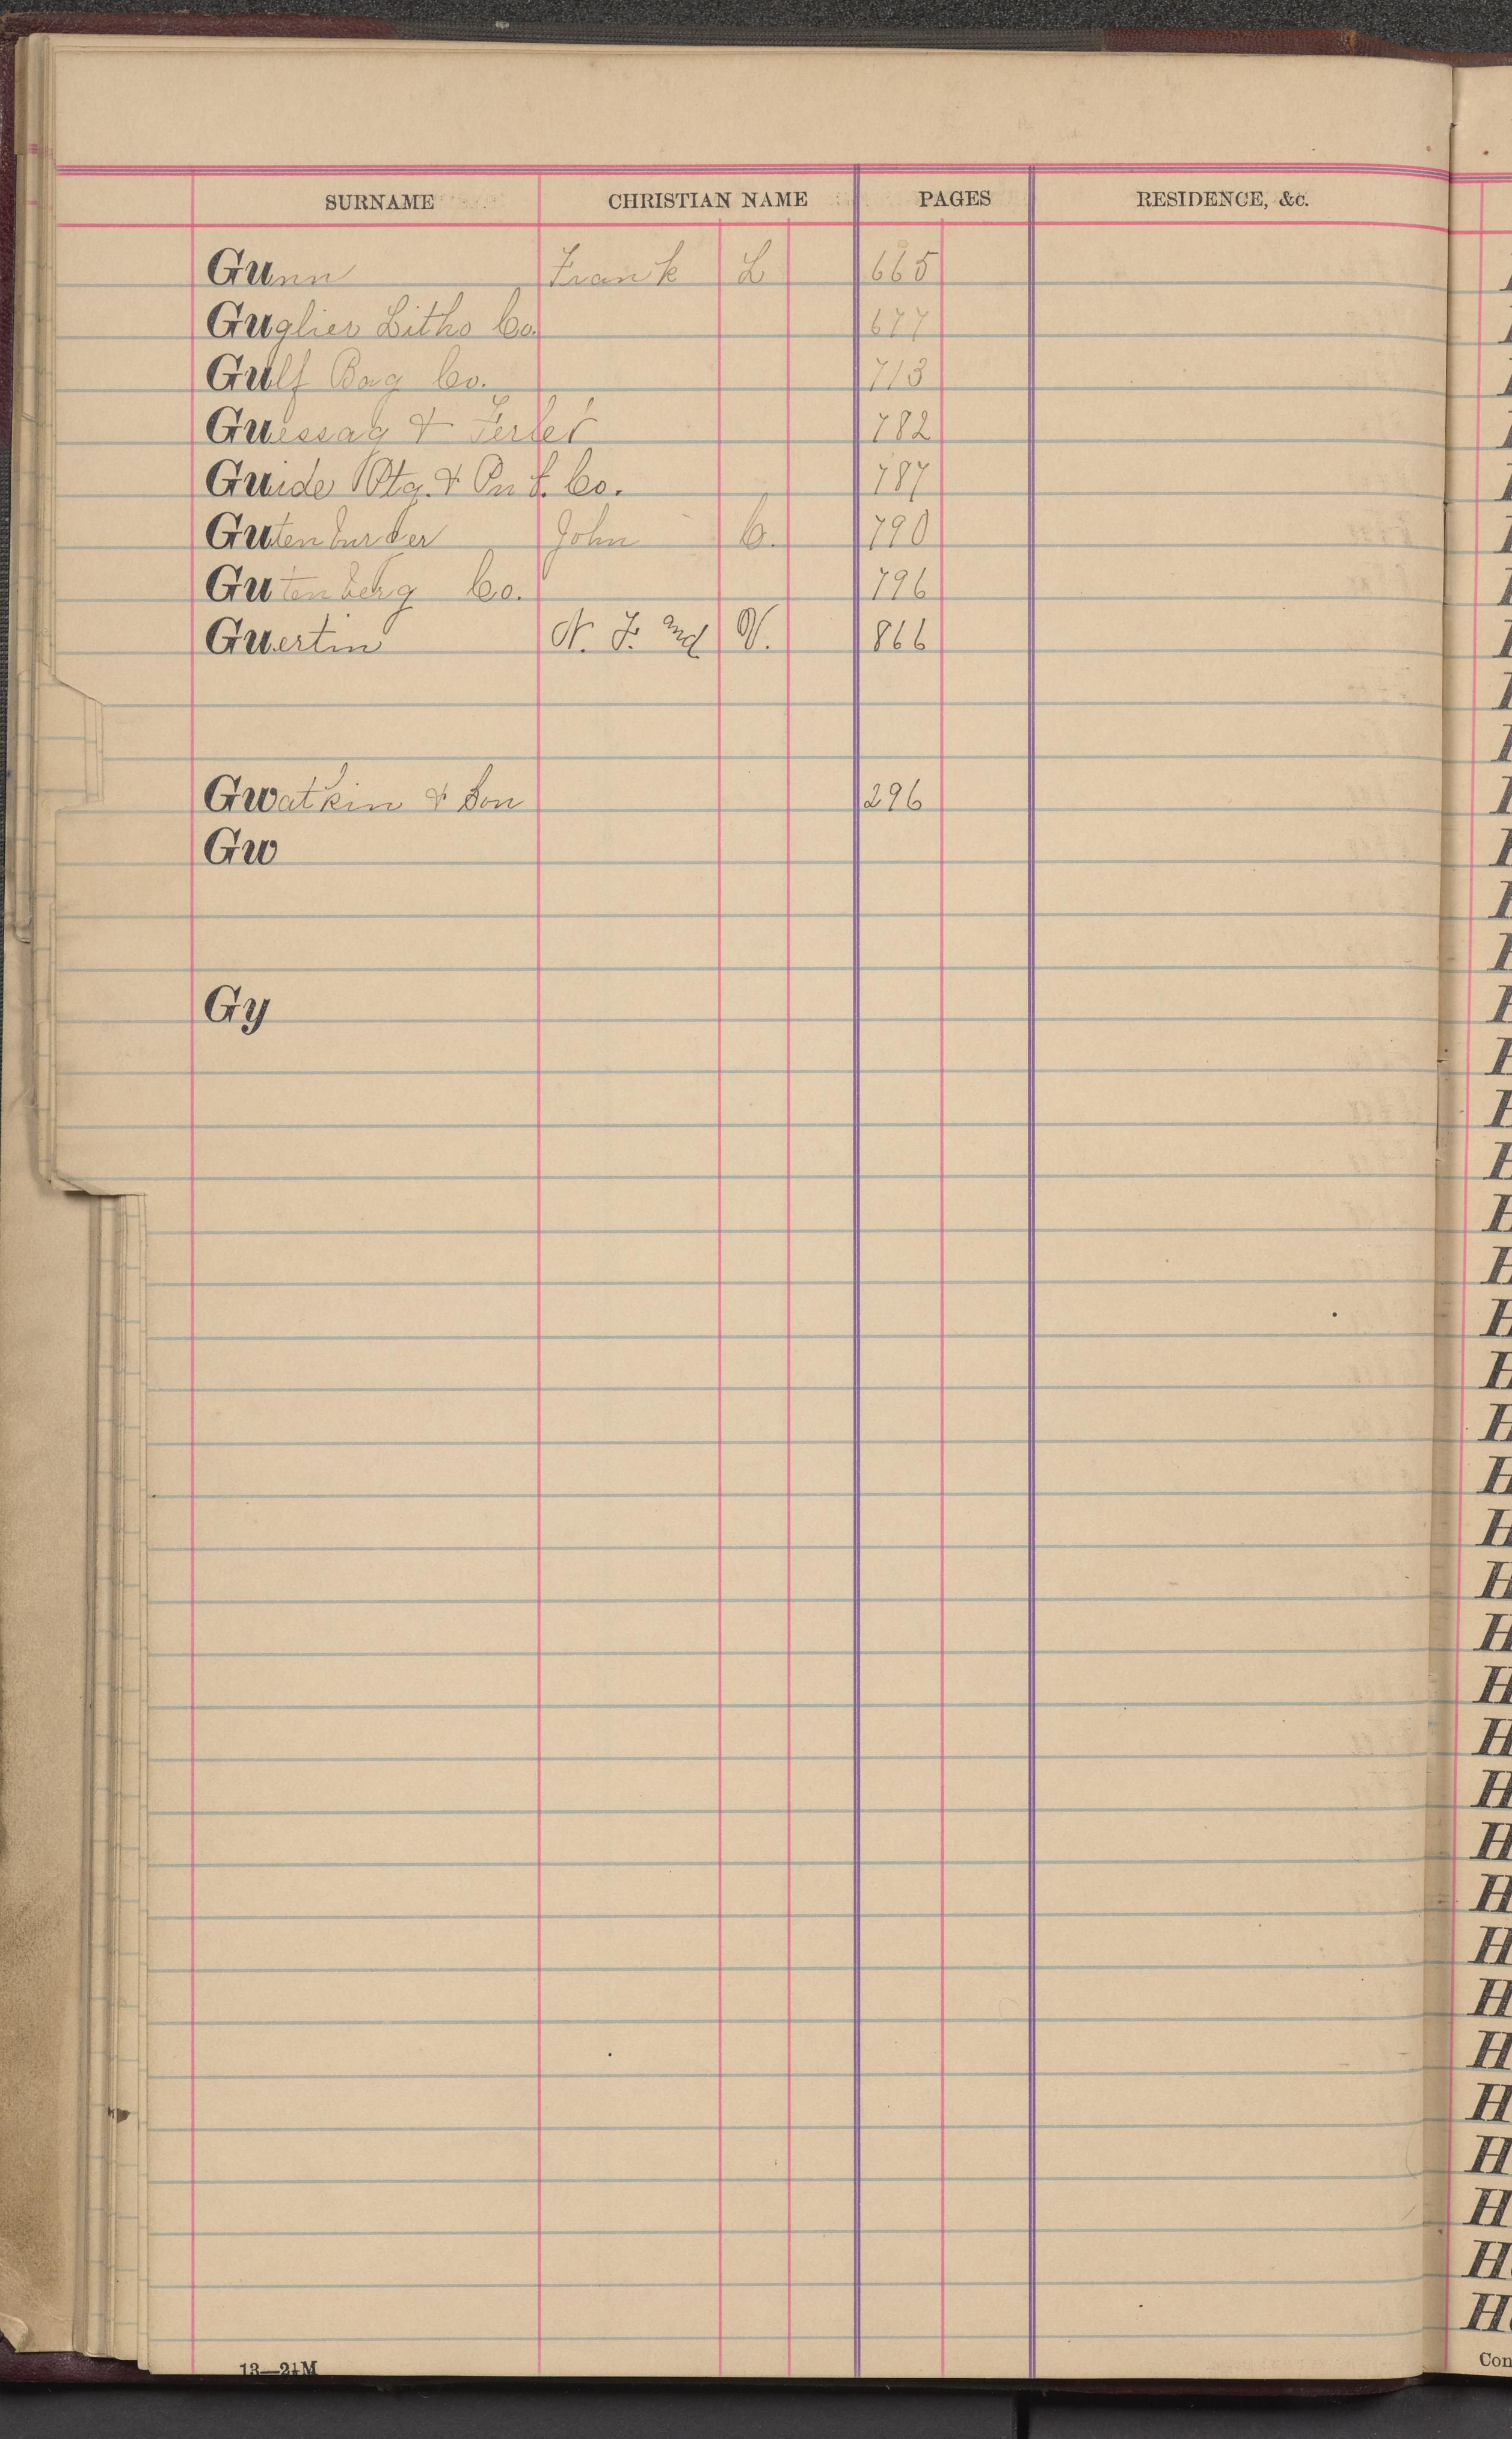 SURNAME CHRISTIAN NAME PAGES RESIDENCE, &c.
Gunn Frank L 665
Guglier Litho Co. 677
Gulf Bag Co. 713
Guessaz & Ferlet 782
Guide Ptg. & Pub. Co. 787
Gutenburder John C. 790
Gutenberg Co. 796
Guertin N. F. and V. 866
Gwatkin & Son 296
Gw
Gy
13—21M